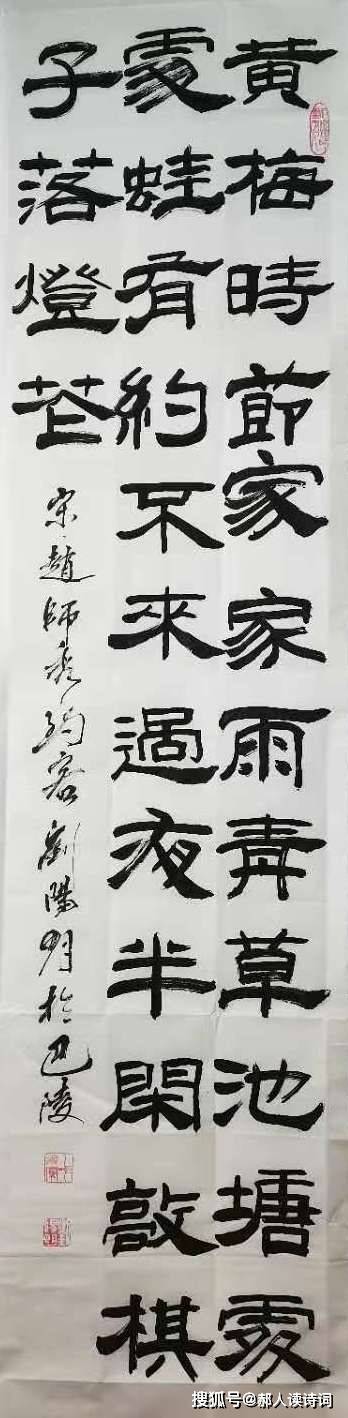 黄梅時節家家雨青草池塘處
處蛙有約不來過夜半閑敲棋
子落燈花
宋趙師秀約客劉陽明於巴陵
搜狐号@郝人读诗词